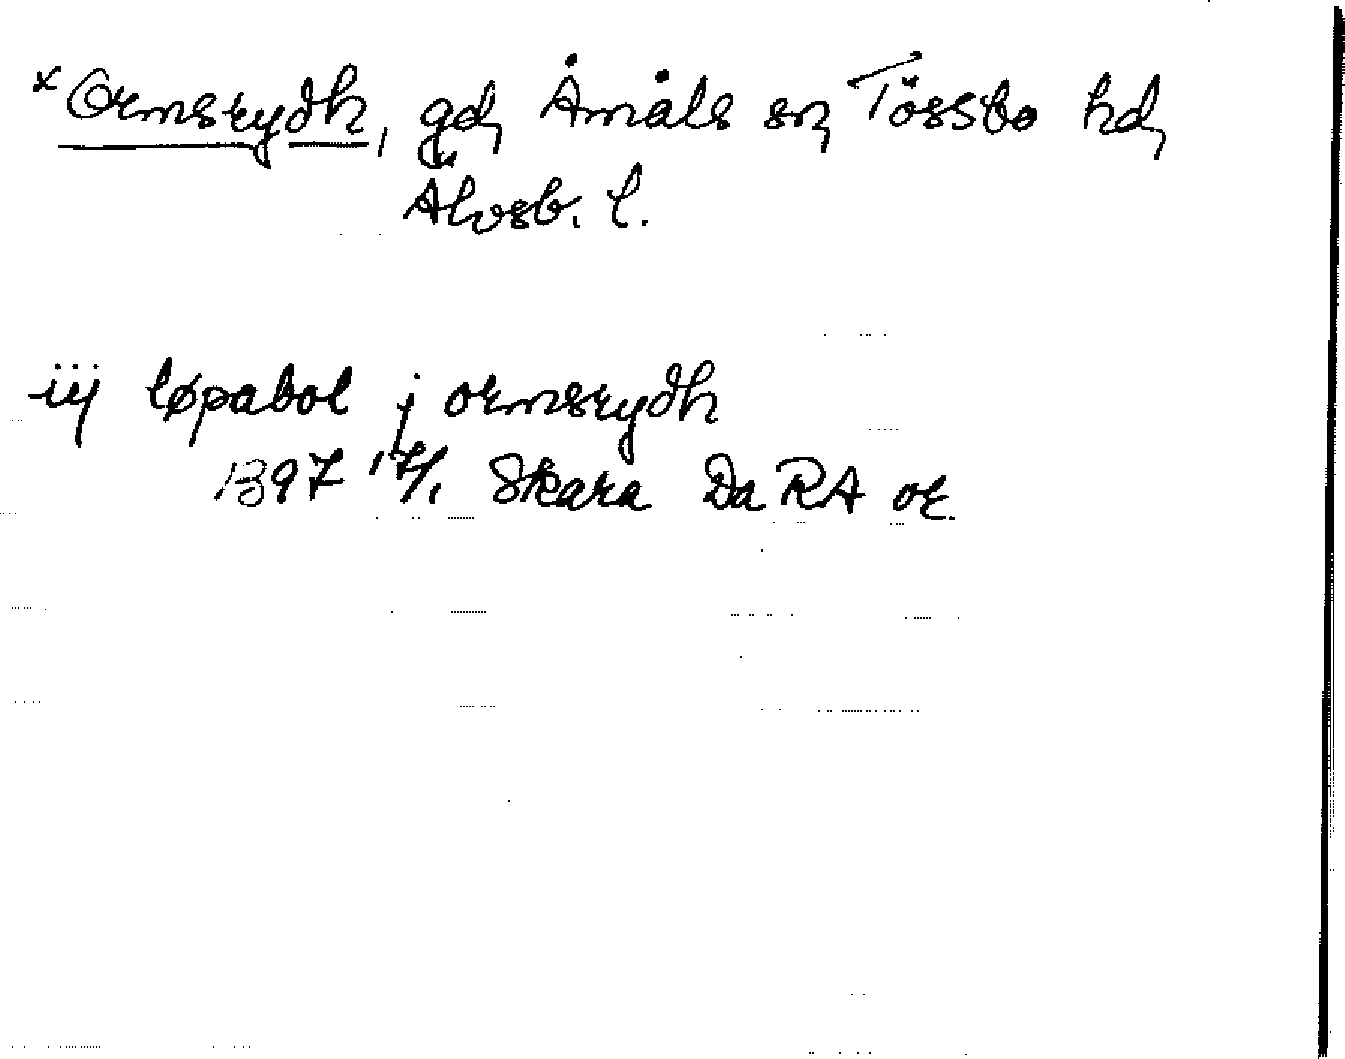 ×Ormsrydh, gd, Åmåls sn, Tössbo hd,
Älvsb. l.
iij løpabol j ormsrydh
1397 17/1 Skara Da RA or.